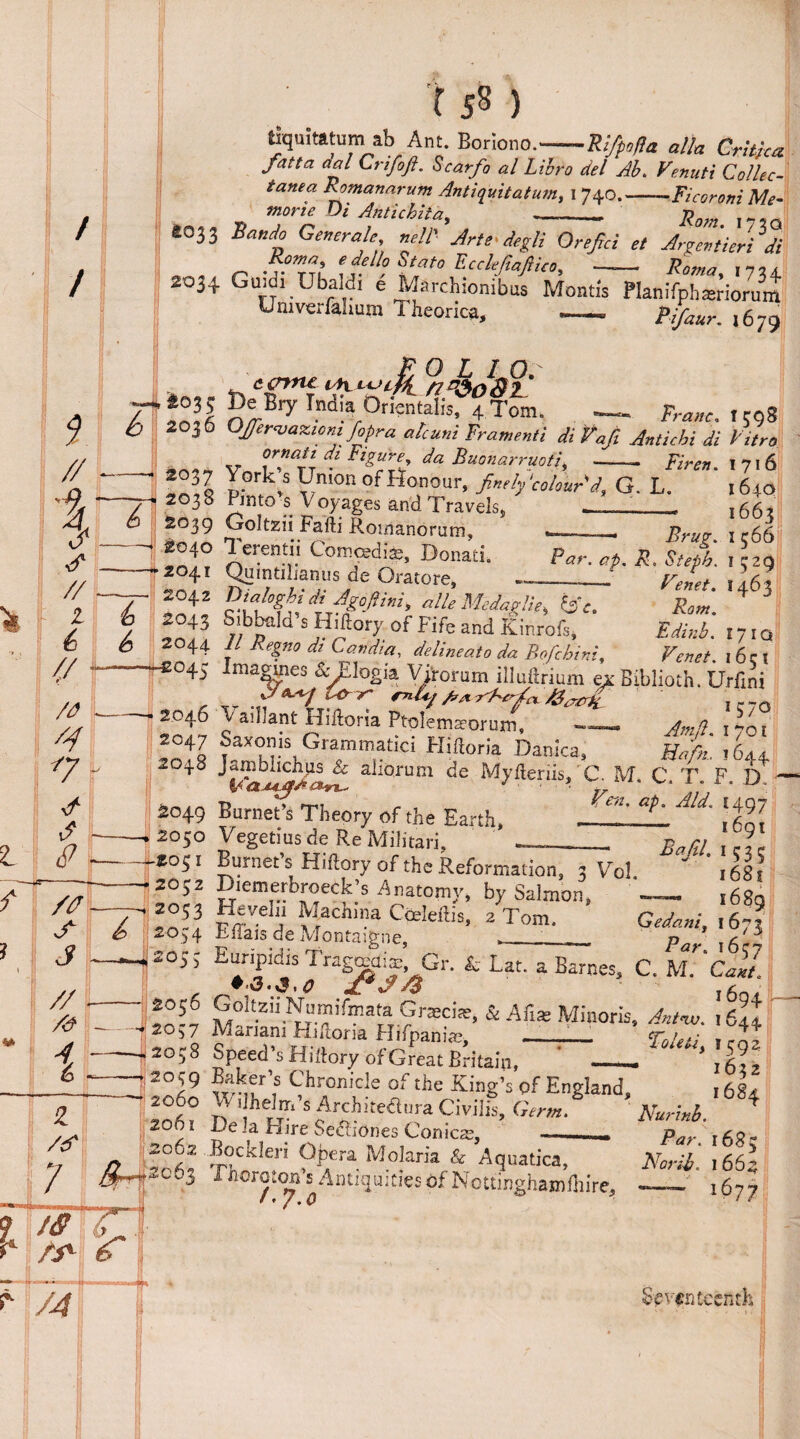 ( 58 )
tiquitatum ab Ant. Boriono.——Rifpofta alla Critica
fatta dal Crifoft. Scarfo al Libro del Ab. Venuti Collec-
tanea Romanarum Antiquitatum, 1740.——Ficoroni Me-
morie Di Antichita, —— Rom. 1730
2033 Bando Generale, nell' Arte degli Orefici et Argentieri di
Roma, e dello Stato Ecclefiaftico, —— Roma, 1734
2034 Guidi Ubaldi é Marchionibus Montis Planifphæriorum
Univerfalium Theorica, —— Pifaur. 1679
FOLIO.
2035 De Bry India Orientalis, 4 Tom. —— Franc. 1598
2036 Offervazioni fopra alcuni Framenti di Vafi Antichi di Vitro
ornati di Figure, da Buonarruoti, —— Firen. 1716
2037 York's Union of Honour, finely colour'd, G. L. 1640
2038 Pinto's Voyages and Travels, —— 1663
2039 Goltzii Fafti Romanorum, —— Brug. 1566
2040 Terentii Comœdiæ, Donati. Par. ap. R. Steph. 1529
2041 Quintilianus de Oratore, —— Venet. 1463
2042 Dialoghi di Agoftini, alle Medaglie, &c. Rom.
2043 Sibbald's Hiftory of Fife and Kinrofs, Edinb. 1710
2044 Il Regno di Candia, delineato da Bofchini, Venet. 1651
2045 Imagines & Elogia Virorum illuftrium ex Biblioth. Urfini
1570
2046 Vaillant Hiftoria Ptolemæorum, —— Amft. 1701
2047 Saxonis Grammatici Hiftoria Danica, Hafn. 1644
2048 Jamblichus & aliorum de Myfteriis, C. M. C. T. F. D.
Ven. ap. Ald. 1497
2049 Burnet's Theory of the Earth, —— 1691
2050 Vegetius de Re Militari, —— Bafil. 1535
2051 Burnet's Hiftory of the Reformation, 3 Vol. 1681
2052 Diemerbroeck's Anatomy, by Salmon, —— 1689
2053 Hevelii Machina Cœleftis, 2 Tom. Gedani, 1673
2054 Effais de Montaigne, —— Par. 1657
2055 Euripidis Tragœdiæ, Gr. & Lat. a Barnes, C. M. Cant.
1694
2056 Goltzii Numifmata Græciæ, & Afiæ Minoris, Antw. 1644
2057 Mariani Hiftoria Hifpaniæ, —— Toleti, 1592
2058 Speed's Hiftory of Great Britain, —— 1632
2059 Baker's Chronicle of the King's of England, 1684
2060 Wilhelm's Architectura Civilis, Germ. Nurinb.
2061 De la Hire Sectiones Conicæ, —— Par. 1685
2062 Bockleri Opera Molaria & Aquatica, Norib. 1662
2063 Thoroton's Antiquities of Nottinghamfhire, —— 1677
1.7.0
Seventeenth